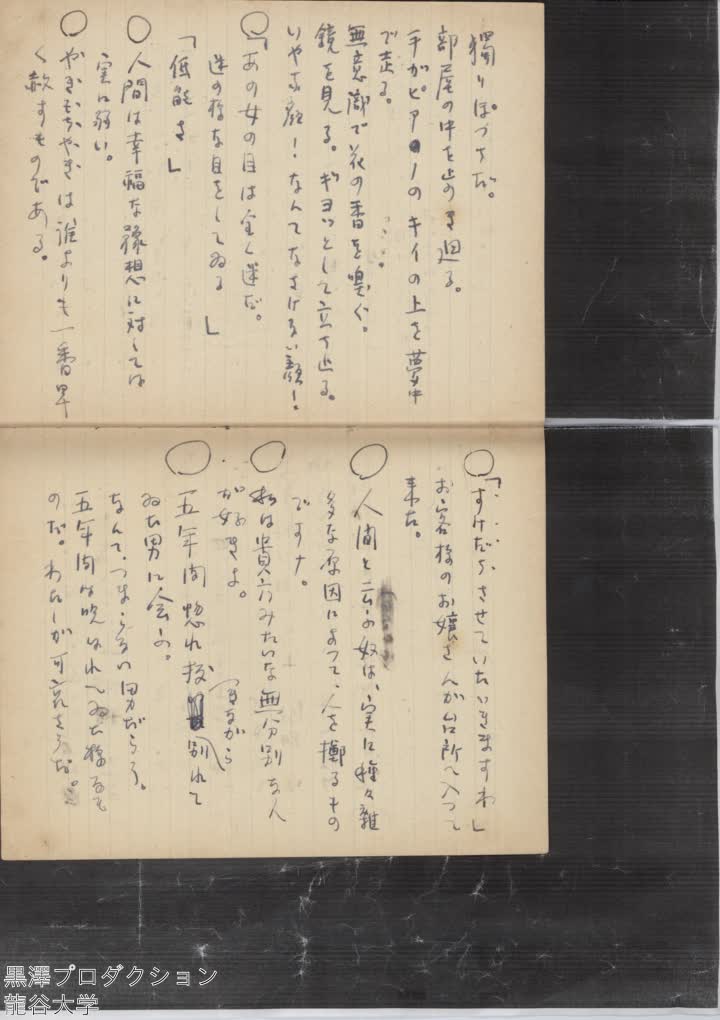 獨りぽつちだ。
部屋の中を歩き廻る。
手がピアノのキイの上を夢中
で走る。
無意識で花の香を嗅ぐ。
鏡を見る。ギヨッとして立ち止る。
いやな顔！なんてなさけない顔！
「あの女の目は全く謎だ。
謎の様な目をしてゐる」
「低能さ」
人間は幸福な豫想に対しては
実に弱い。
やきもちやきは誰よりも一番早
く赦すものである。
「すけだちさせていたゞきますわ」
お客様のお嬢さんが台所へ入つて
来た。
人間と云ふ奴は、実に種々雑
多な原因によつて、人を擲るもの
ですナ。
私は貴方みたいな無分別なん
が好きよ。
五年間惚れ抜きながら別れて
ゐた男に会ふ。
なんて、つまらない男だらう。
五年間も呪はれてゐた様なも
のだ。わたしが可哀さうだ。
黒澤プロダクション
龍谷大学